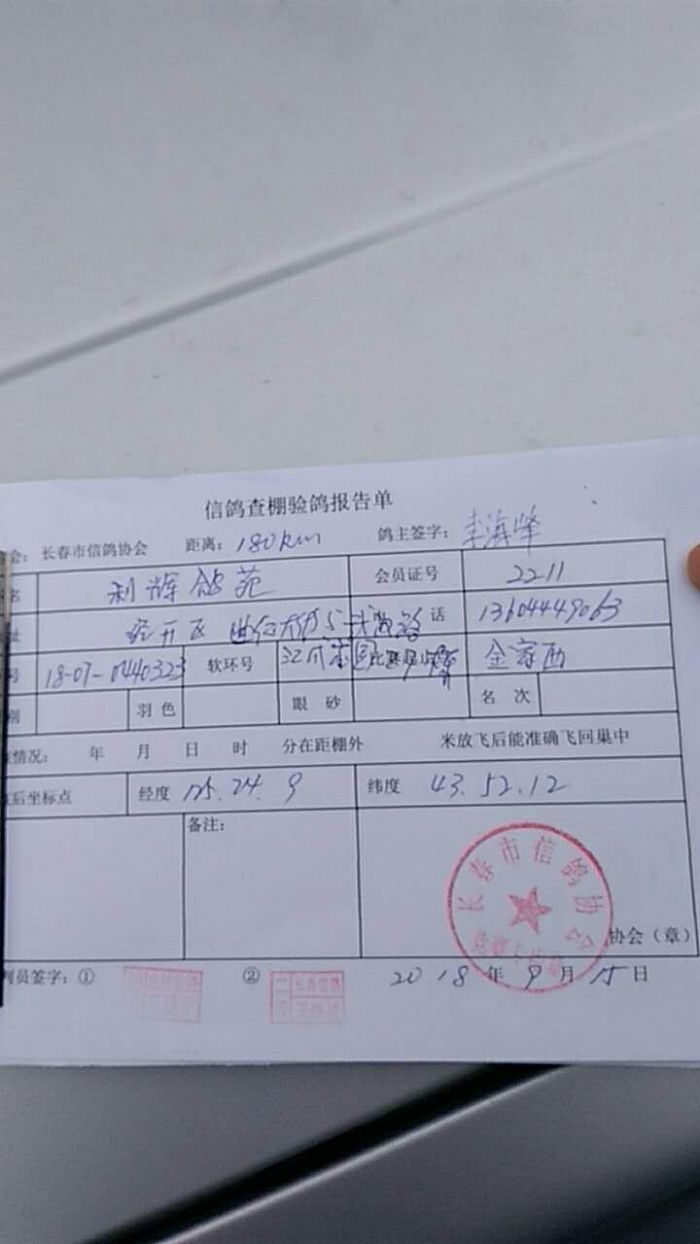 信鸽查棚验鸽报告单
会：长春市信鸽协会 距离：180km 鸽主签字：李海峰
名 利辉鸽苑 会员证号 2211
址 经开区 话 13604449063
号 18-07-0440323 软环号
别 羽色 眼砂 名次
情况： 年 月 日 时 分在距棚外 米放飞后能准确飞回巢中
后坐标点 经度 125.24.9 纬度 43.52.12
备注：
长春市信鸽协会
协会（章）
判员签字：① ② 2018年9月15日
长春信鸽